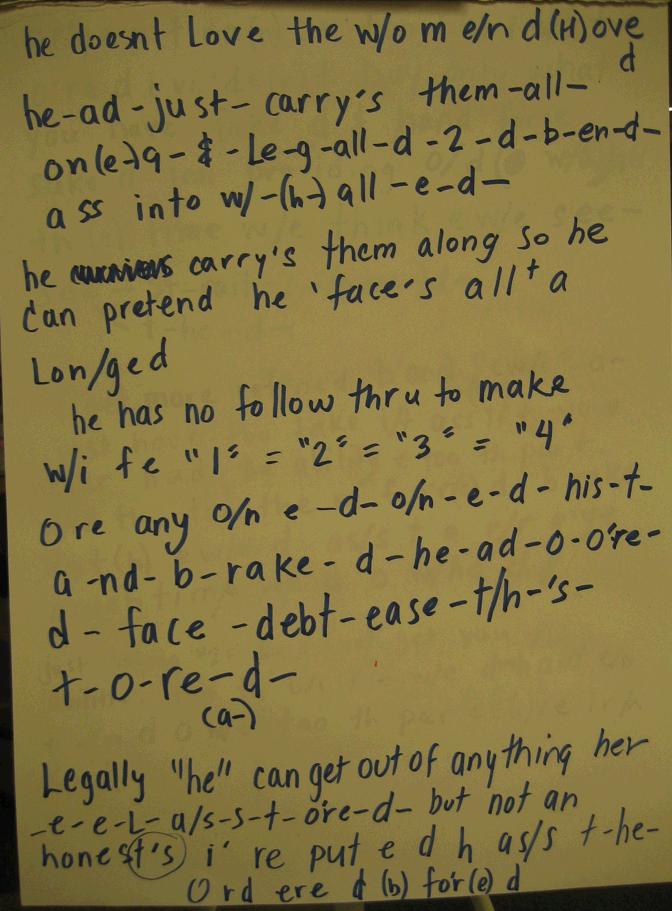 he doesnt Love the w/o m e/n d (H)ove
d
he-ad-just- carry's them-all-
on(e-)9- & -Le-g-all-d-2-d-b-en-d-
ass into w/-(h-) all-e-d-
he carry's them along so he
can pretend he 'face's all + a
Lon/ged
he has no follow thru to make
w/i fe "1" = "2" = "3" = "4"
Ore any o/n e-d- o/n-e-d- his-t-
a-nd-b-rake-d-he-ad-o-o're-
d- face -debt-ease-t/h-'s-
t-o-re-d-
(a-)
Legally "he" can get out of anything her
-e-e-L-a/s-s-t-o're-d- but not an
honest's i' re put e d h as/s t-he-
Ord ere d (b) for(e) d